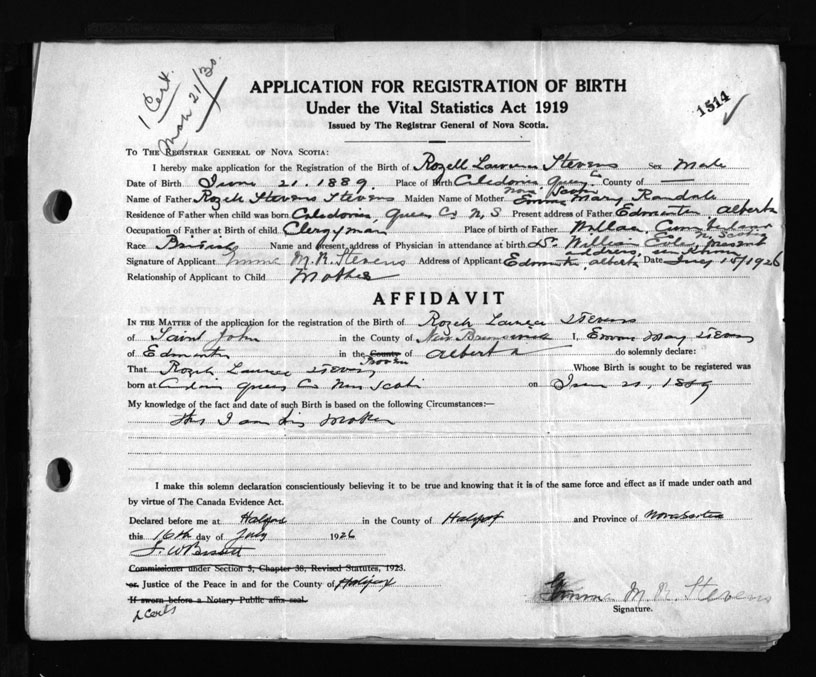 1 Cert.
Mar 21/30.
1514
APPLICATION FOR REGISTRATION OF BIRTH
Under the Vital Statistics Act 1919
Issued by The Registrar General of Nova Scotia.
TO THE REGISTRAR GENERAL OF NOVA SCOTIA:
I hereby make application for the Registration of the Birth of Rozell Stevens Sex Male
Date of Birth June 21. 1889. Place of Birth Caledonia Queens Co County of —
Nova Scotia
Name of Father Stevens Stevens Maiden Name of Mother Emma Mary Randall
Residence of Father when child was born Caledonia, Queens Co N.S Present address of Father Edmonton, Alberta
Occupation of Father at Birth of child. Clergyman Place of birth of Father Cumberland
N. Scotia
Race British Name and present address of Physician in attendance at birth Dr. William present
address unknown
Signature of Applicant Emma M.R. Stevens Address of Applicant Edmonton, Alberta Date July 10/1926
Relationship of Applicant to Child Mother
AFFIDAVIT
IN THE MATTER of the application for the registration of the Birth of Stevens
of Saint John in the County of New Brunswick I, Emma May Stevens
of Edmonton in the County of Alberta do solemnly declare:
That Stevens Whose Birth is sought to be registered was
born at Queens Co Nova Scotia on June 21, 1889
My knowledge of the fact and date of such Birth is based on the following Circumstances:—
I am his mother
I make this solemn declaration conscientiously believing it to be true and knowing that it is of the same force and effect as if made under oath and
by virtue of The Canada Evidence Act.
Declared before me at Halifax in the County of Halifax and Province of Nova Scotia
this 16th day of July 1926
Commissioner under Section 3, Chapter 38, Revised Statutes, 1923.
or Justice of the Peace in and for the County of Halifax
If sworn before a Notary Public affix seal.
Emma M. R. Stevens
Signature.